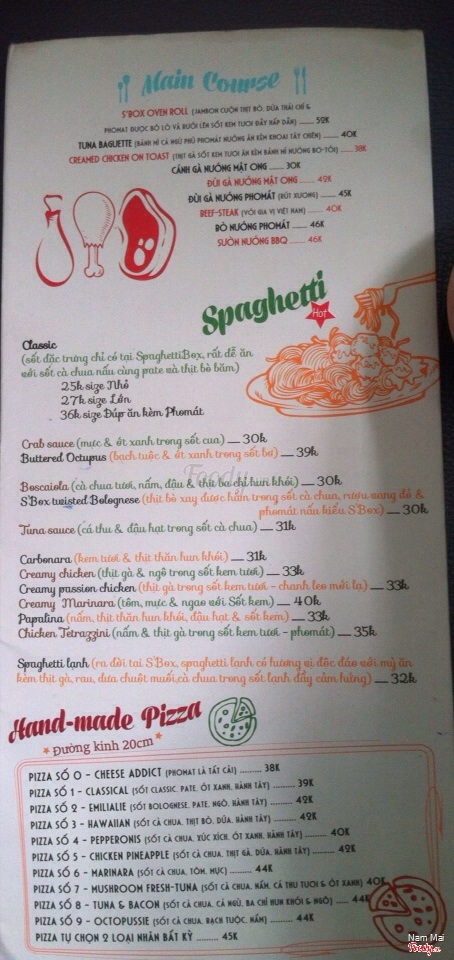 Main Course
S'BOX OVEN ROLL (JAMBON CUỘN THỊT BÒ, DỨA THÁI CHỈ &
PHOMAT ĐƯỢC BỎ LÒ VÀ RƯỚI LÊN SỐT KEM TƯƠI ĐẦY HẤP DẪN) ....... 52K
TUNA BAGUETTE (BÁNH MÌ CÁ NGỪ PHỦ PHOMAT NƯỚNG ĂN KÈM KHOAI TÂY CHIÊN) ....... 40K
CREAMED CHICKEN ON TOAST (THỊT GÀ SỐT KEM TƯƠI ĂN KÈM BÁNH MÌ NƯỚNG BƠ-TỎI) ....... 38K
CÁNH GÀ NƯỚNG MẬT ONG ....... 30K
ĐÙI GÀ NƯỚNG MẬT ONG ....... 42K
ĐÙI GÀ NƯỚNG PHOMÁT (RÚT XƯƠNG) ....... 45K
REEF-STEAK (VỚI GIA VỊ VIỆT NAM) ....... 40K
BÒ NƯỚNG PHOMÁT ....... 46K
SƯỜN NƯỚNG BBQ ....... 46K
Spaghetti
HOT
Classic
(sốt đặc trưng chỉ có tại SpaghettiBox, rất dễ ăn
với sốt cà chua nấu cùng pate và thịt bò băm)
25k size Nhỏ
27k size Lớn
36k size Đúp ăn kèm Phomát
Crab sauce (mực & ớt xanh trong sốt cua) — 30k
Buttered Octupus (bạch tuộc & ớt xanh trong sốt bơ) — 39k
Foody
Boscaiola (cà chua tươi, nấm, đậu & thịt ba chỉ hun khói) — 30k
S'Box twisted Bolognese (thịt bò xay được hầm trong sốt cà chua, rượu vang đỏ &
phomát nấu kiểu S'Box) — 30k
Tuna sauce (cá thu & đậu hạt trong sốt cà chua) — 31k
Carbonara (kem tươi & thịt thăn hun khói) — 31k
Creamy chicken (thịt gà & ngô trong sốt kem tươi) — 33k
Creamy passion chicken (thịt gà trong sốt kem tươi - chanh leo mới lạ) — 33k
Creamy Marinara (tôm, mực & ngao với Sốt kem) — 40k
Papalina (nấm, thịt thăn hun khói, đậu hạt & sốt kem) — 33k
Chicken Tetrazzini (nấm & thịt gà trong sốt kem tươi - phomát) — 35k
Spaghetti lạnh (ra đời tại S'Box, spaghetti lạnh có hương vị độc đáo với mỳ ăn
kèm thịt gà, rau, dưa chuột muối,cà chua trong sốt lạnh đầy cảm hứng) — 32k
Hand-made Pizza
Đường kính 20cm
PIZZA SỐ 0 - CHEESE ADDICT (PHOMAT LÀ TẤT CẢ!) .......... 38K
PIZZA SỐ 1 - CLASSICAL (SỐT CLASSIC, PATE, ỚT XANH, HÀNH TÂY) .......... 39K
PIZZA SỐ 2 - EMILIALIE (SỐT BOLOGNESE, PATE, NGÔ, HÀNH TÂY) .......... 42K
PIZZA SỐ 3 - HAWAIIAN (SỐT CÀ CHUA, THỊT BÒ, DỨA, HÀNH TÂY) .......... 42K
PIZZA SỐ 4 - PEPPERONIS (SỐT CÀ CHUA, XÚC XÍCH, ỚT XANH, HÀNH TÂY) .......... 40K
PIZZA SỐ 5 - CHICKEN PINEAPPLE (SỐT CÀ CHUA, THỊT GÀ, DỨA, HÀNH TÂY) .......... 42K
PIZZA SỐ 6 - MARINARA (SỐT CÀ CHUA, TÔM, MỰC) .......... 44K
PIZZA SỐ 7 - MUSHROOM FRESH-TUNA (SỐT CÀ CHUA, NẤM, CÁ THU TƯƠI & ỚT XANH) 40K
PIZZA SỐ 8 - TUNA & BACON (SỐT CÀ CHUA, CÁ NGỪ, BA CHỈ HUN KHÓI & NGÔ) ..... 44K
PIZZA SỐ 9 - OCTOPUSSIE (SỐT CÀ CHUA, BẠCH TUỘC, NẤM) .......... 44K
PIZZA TỰ CHỌN 2 LOẠI NHÂN BẤT KỲ .......... 45K
Nam Mai
Foody.vn